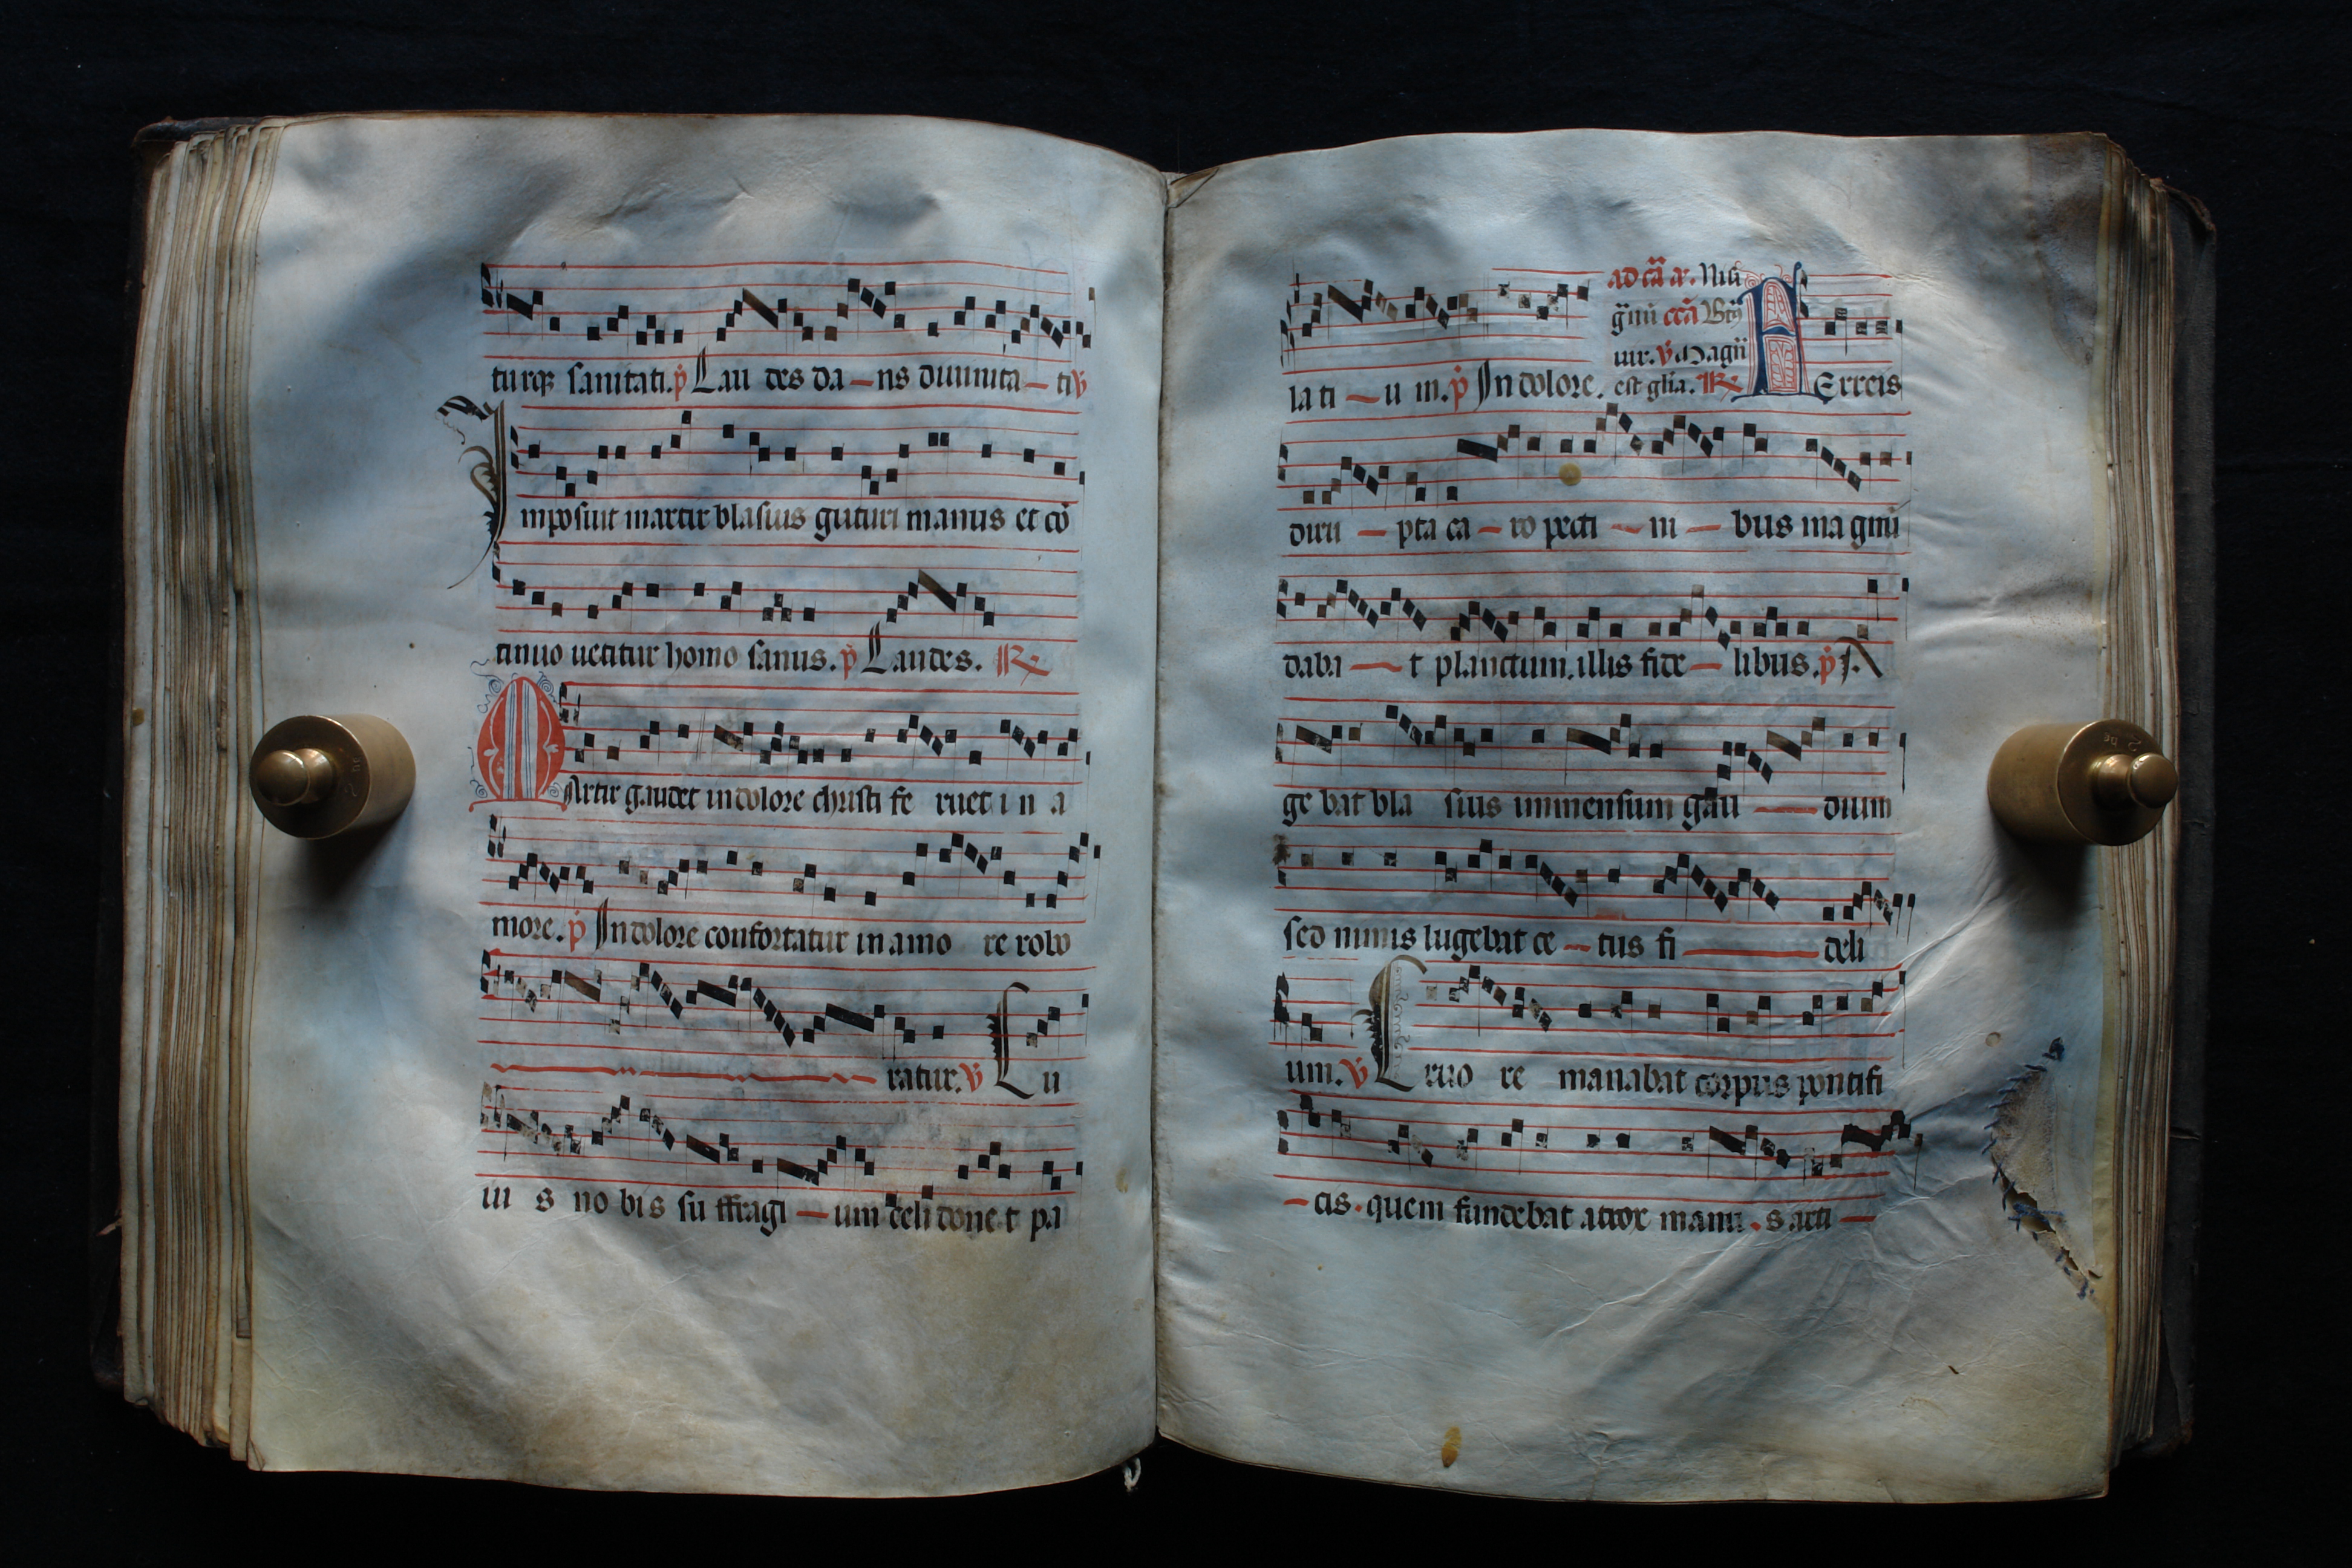 turqꝫ sanitati. p̄ Lau des da – ns diuinita – ti ℣
Imposuit martir blasius guturi manus et cō
tinuo uetitur homo sanus. p̄ Laudes. ℟
MArtir gaudet in dolore christi fe ruet i n a
more. p̄ In dolore confortatur in amo re robo
ratur. ℣ Cu
iu s no bi s su ffragi – um celi done t pa
la ti – u m. p̄ In dolore.
ad cā a. Nisi
g̃nū ccā Btūs
uir. ℣ Magñ
est glīa. ℟
FErreis
diru – pta ca – ro pecti – ni – bus magnū
daba – t planctum. illis fide – libus. p̄ A
ge bat bla sius immensum gau – dium
sed nimis lugebat ce – tus fi – deli
um. ℣ Cruo re manabat corpus pontifi
– cis. quem fundebat atrox manu . s arti –